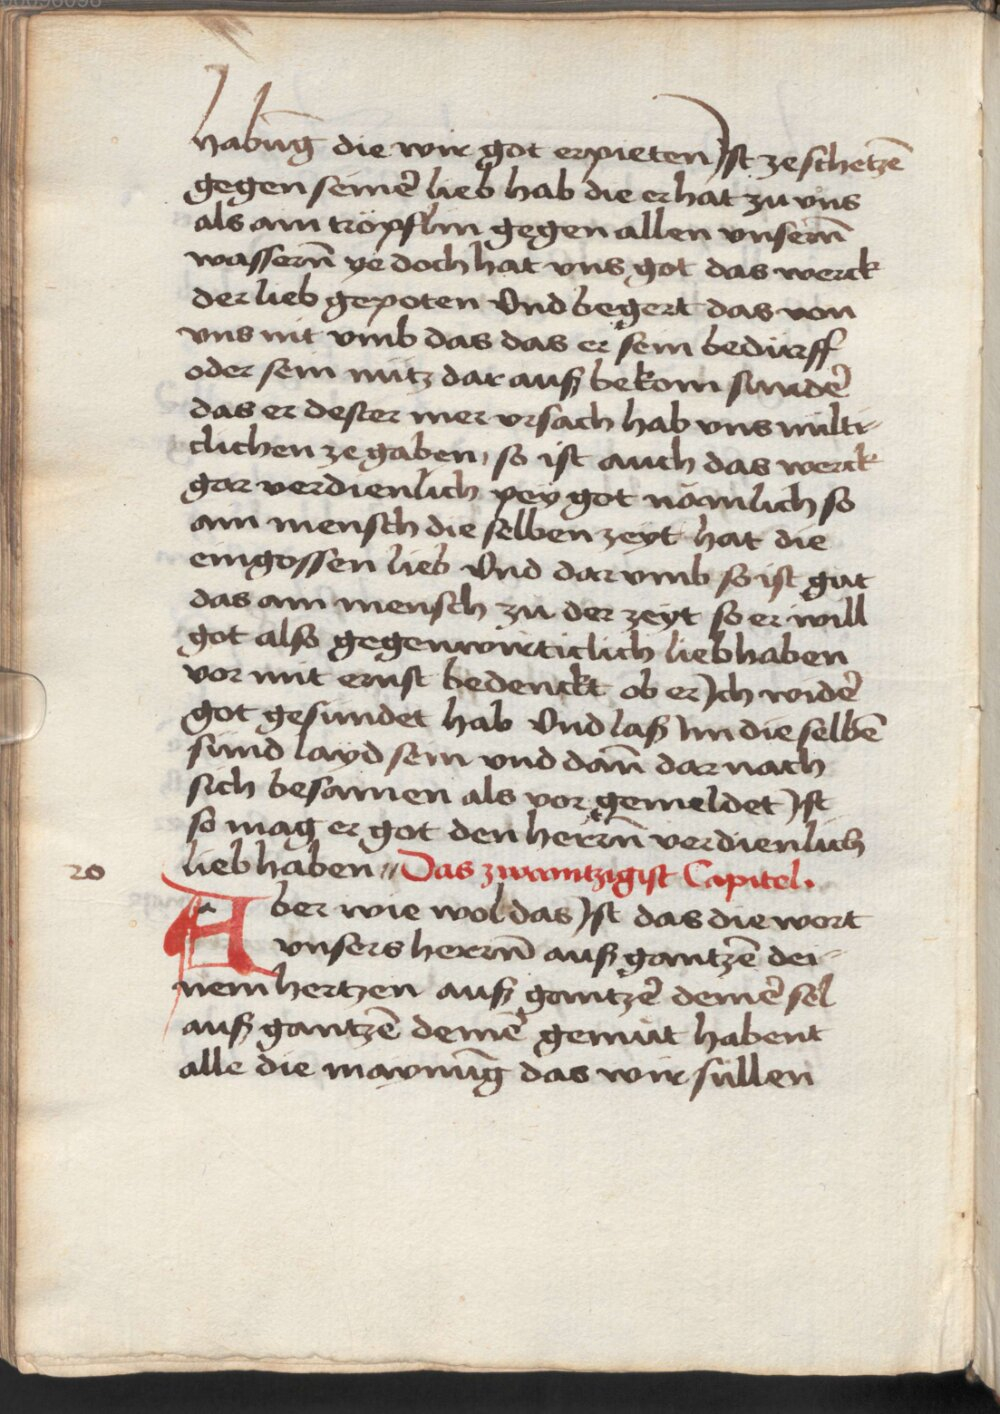 habūg die wir got erpieten Jst ze schetzē
gegen seinē lieb hab die er hat zu vns
als ain tröpflin gegen allen vnsern̄
wassern̄ ye doch hat vns got das werck
der lieb gepoten Vnd begert das von
vns nit vmb das das er sein bedürff
oder sein nütz dar auß bekom sundē
das er dester mer vrsach hab vns milti-
clichen ze gaben, so ist auch das werck
gar verdienlich pey got nämlich so
ain mensch die selben zeyt hat die
eingossen lieb Vnd dar vmb so ist gut
das ain mensch zů der zeyt so er will
got also gegenwirticlich lieb haben
vor mit ernst bedenckt ob er Jch widē
got gesundet hab Vnd laß Jm die selbē
sünd layd sein vnd dan̄ dar nach
sich besamen als vor gemeldet Jst
so mag er got den herrn̄ verdienlich
20 lieb haben // Das zwaintzigist Capitel.
Aber wie wol das Jst das die wort
vnsers herrn̄ auß gantzē dei-
nem hertzen auß gantzē deinē sel
auß gantzē deinē gemüt habent
alle die maynūg das wir süllen